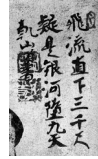 飛流直下三千尺
疑是銀河落九天
乾山